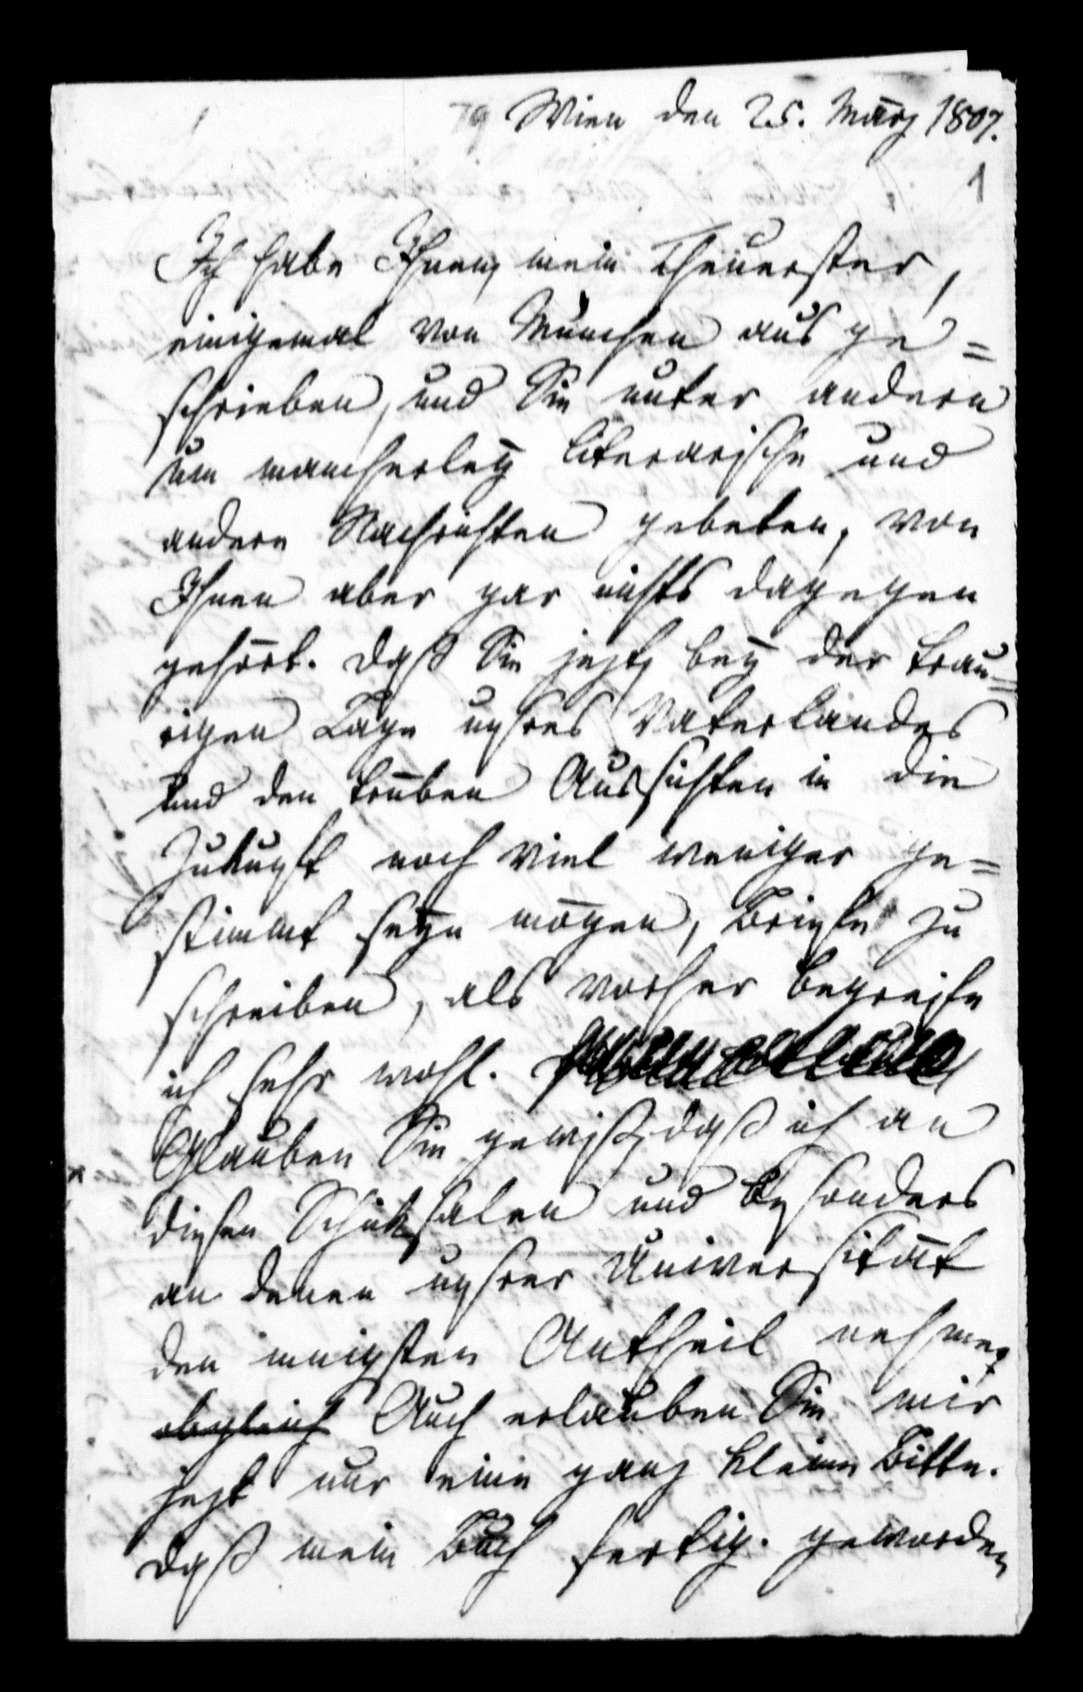 Wien den 25. März 1807.
1
Ich habe Ihnen, mein Theuerster,
einigemal von München aus ge=
schrieben, und Sie unter andern
um mancherley literarische und
andere Nachrichten gebeten, von
Ihnen aber gar nichts dagegen
gehört. Daß Sie jezt, bey der trau=
rigen Lage unsres Vaterlandes
und den trüben Aussichten in die
Zukunft noch viel weniger ge=
stimmt seyn mögen, Briefe zu
schreiben, als vorher begreife
ich sehr wohl.
Glauben Sie gewiß, daß ich an
diesen Schiksalen und besonders
an denen unsrer Universität
den innigsten Antheil nehme,
obgleich Auch erlauben Sie mir
jezt nur eine ganz kleine Bitte.
Daß mein Buch fertig geworden